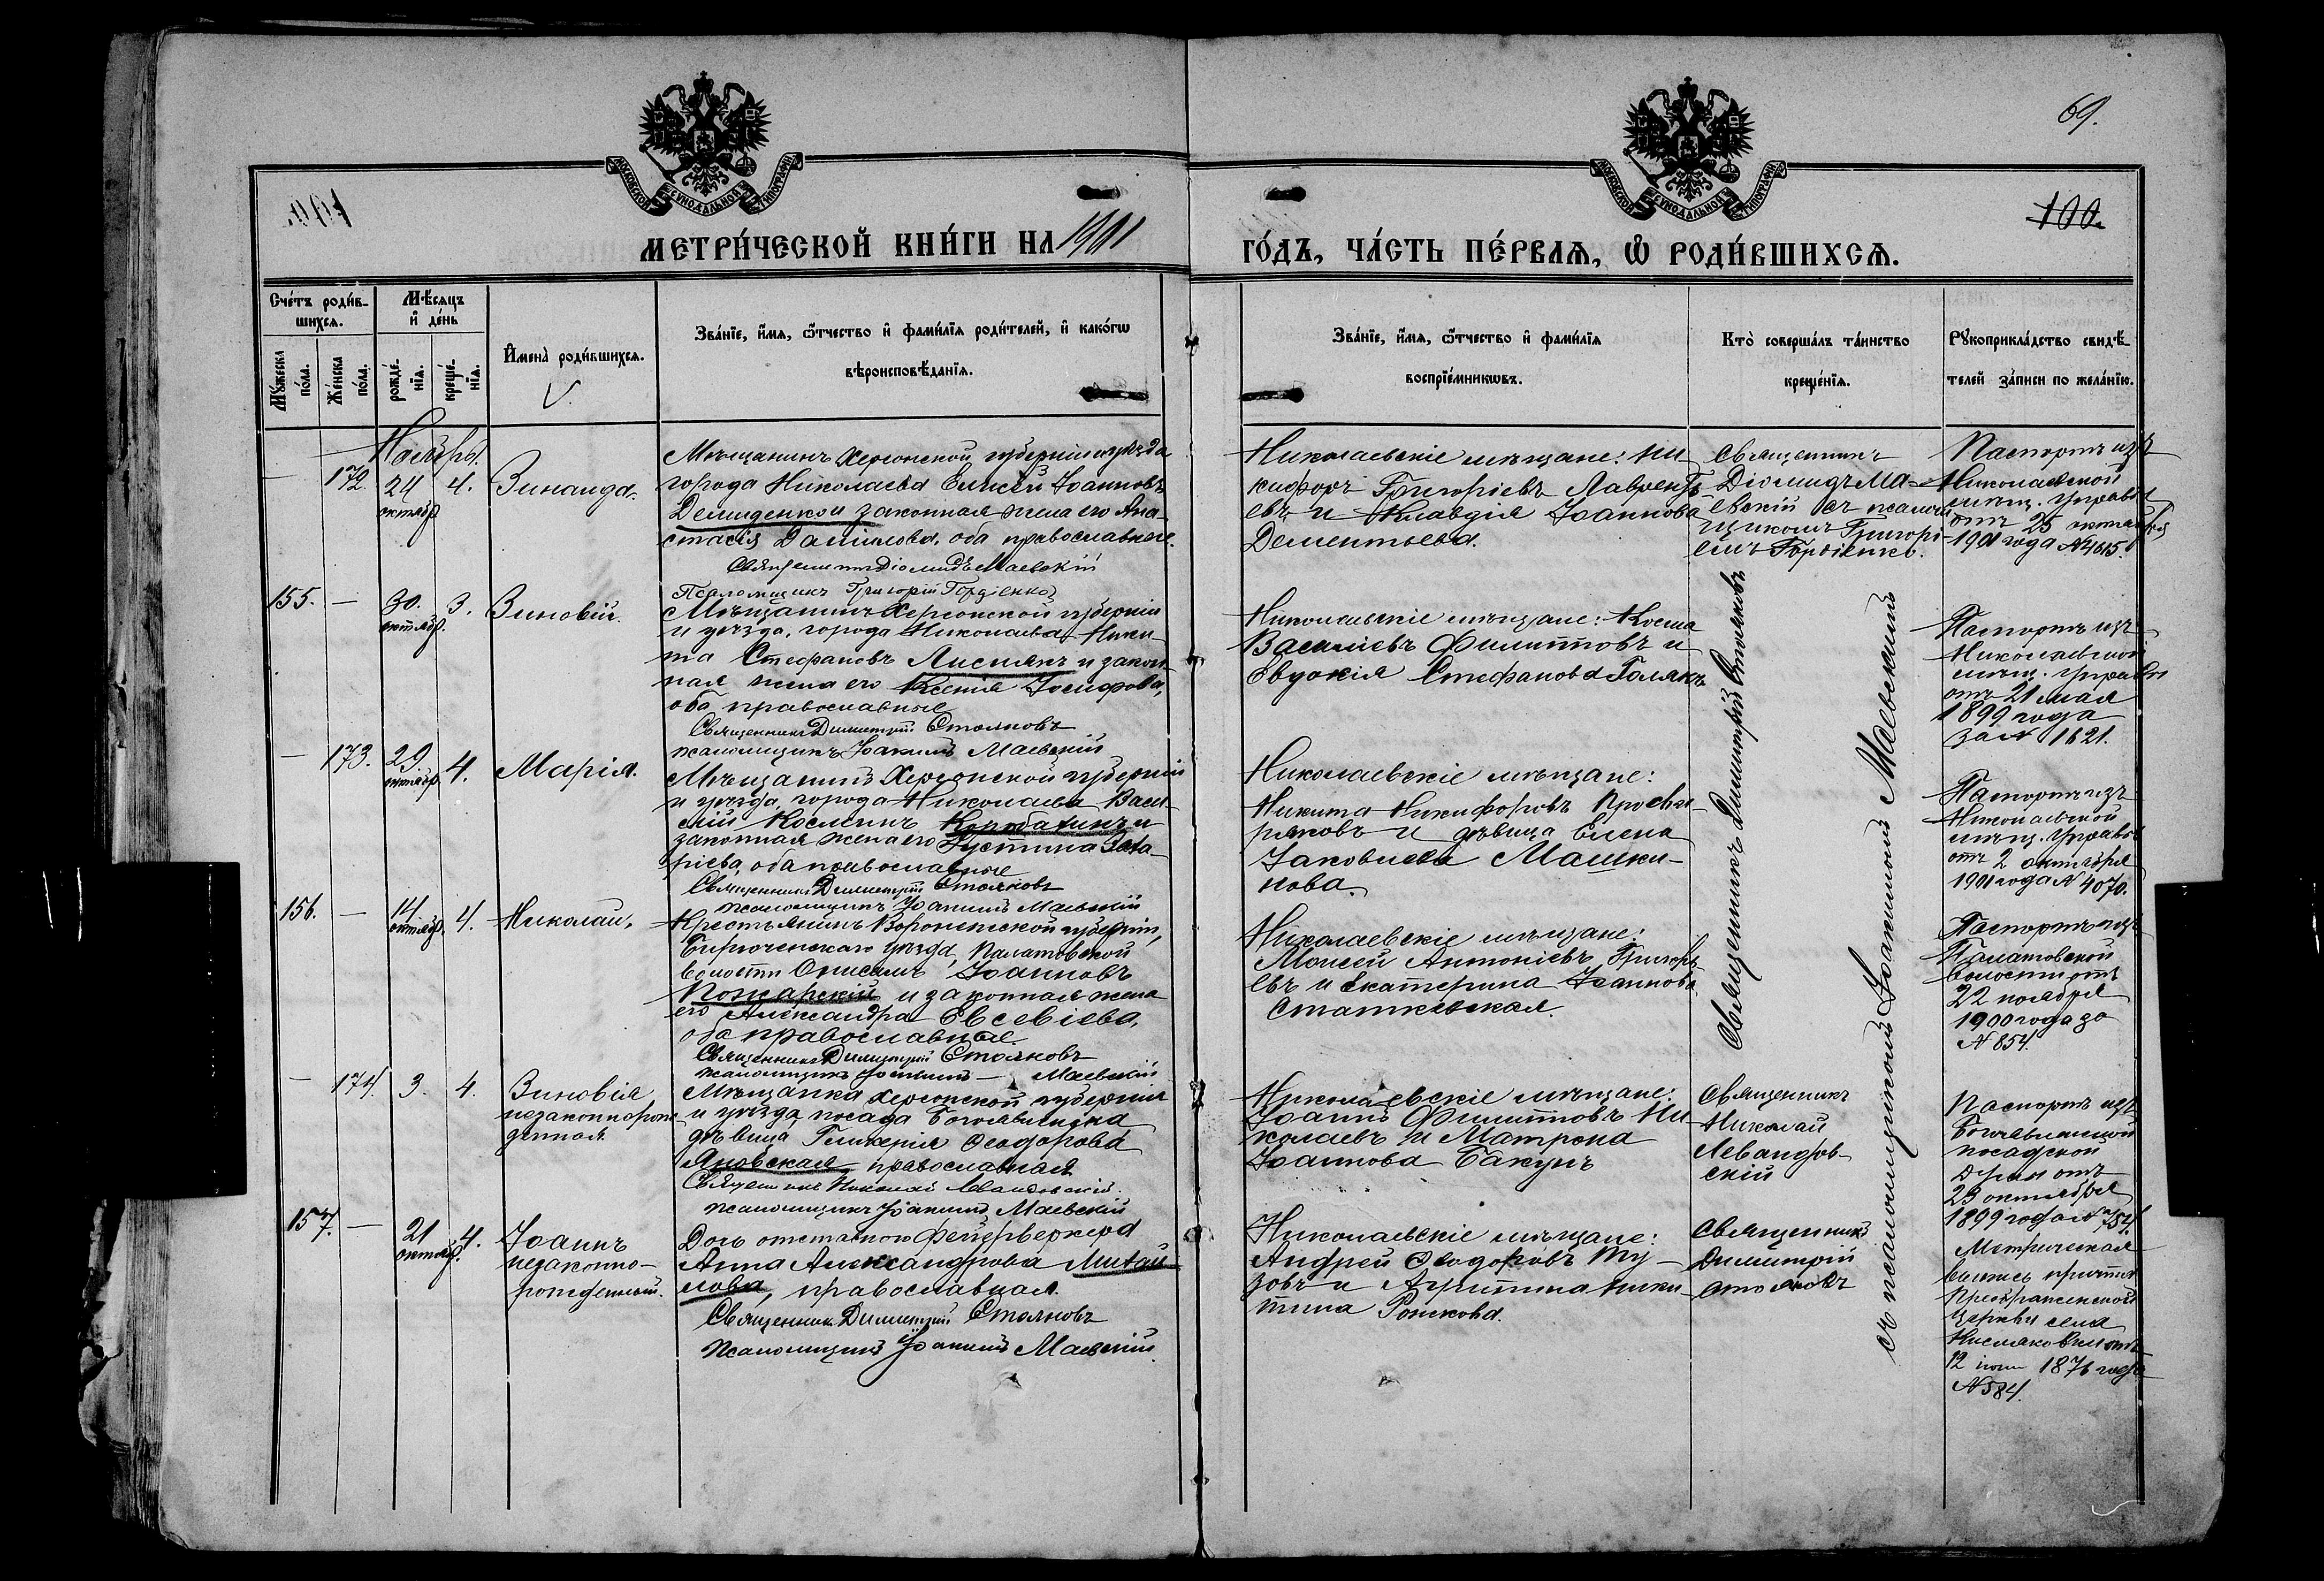 69.
100.
МОСКОВСКОЙ СУНОДАЛЬНОЙ ТИПОГРАФІИ
МОСКОВСКОЙ СУНОДАЛЬНОЙ ТИПОГРАФІИ
МЕТРИ́ЧЕСКОЙ КНИ́ГИ НА 1901
ГО́ДЪ, ЧА́СТЬ ПЕ́РВАѦ, Ѽ РОДИ́ВШИХСѦ.
Сче́тъ роди́в-
шихсѧ.
Мѣ́сѧцъ
и҆ де́нь
Мꙋ́жеска
по́ла.
Же́нска
по́ла.
рожде́-
нїѧ.
креще́-
нїѧ.
И҆мена̀ роди́вшихсѧ.
Зва́нїе, и҆́мѧ, ѻ҆́тчество и҆ фами́лїѧ роди́телей, и҆ како́гѡ
вѣроисповѣ́данїѧ.
Зва́нїе, и҆́мѧ, ѻ҆́тчество и҆ фами́лїѧ
воспрїе́мникѡвъ.
Кто̀ соверша́лъ та́инство
креще́нїѧ.
Рꙋкоприкла́дство свидѣ́-
телей за́писи по жела́нїю.
Ноябрь.
— 172. 24 октябр. 4. Зинаида.
Мѣщанинъ Херсонской губерніи и уѣзда
города Николаева Елисей Іоанновъ
Демиденко и законная жена его Ана-
стасія Данилова, оба православные.
Священникъ Діомидъ Маевскій
Псаломщикъ Григорій Гордіенко
Николаевскіе мѣщане: Ни-
кифоръ Григоріевъ Лаврентьевъ и Клавдія Іоаннова
Дементьева.
Священникъ
Діомидъ Ма-
евскій съ псалом-
щикомъ Григорі-
емъ Гордіенко.
Паспортъ изъ
Николаевской
мѣщ. управы
отъ 25 октября
1901 года № 4615.
155. — 30. октябр. 3. Зиновій.
Мѣщанинъ Херсонской губерніи
и уѣзда, города Николаева Ники-
та Стефановъ Лиснякъ и закон-
ная жена его Ксенія Іосифова,
оба православные
Священникъ Димитрій Стояновъ
псаломщикъ Іоакимъ Маевскій
Николаевскіе мѣщане: Косма
Василіевъ Филипповъ и
Евдокія Стефанова Голякъ
Паспортъ изъ
Николаевской
мѣщ. управы
отъ 21 мая
1899 года
за № 1621.
— 173. 29. октябр. 4. Марія.
Мѣщанинъ Херсонской губерніи
и уѣзда, города Николаева Васи-
лій Косминъ Коробакинъ и
законная жена его Іустина Заха-
ріева, оба православные
Священникъ Димитрій Стояновъ
псаломщикъ Іоакимъ Маевскій
Николаевскіе мѣщане:
Никита Никифоровъ Просви-
ряковъ и дѣвица Елена
Іаковлева Машки-
нова.
Паспортъ изъ
Николаевской
мѣщ. управы
отъ 2 октября
1901 года № 4070.
156. — 14 октябр. 4. Николай.
Крестьянинъ Воронежской губерніи,
Бирюченскаго уѣзда, Палатовской
волости Онисимъ Іоанновъ
Пожарскій и законная жена
его Александра Евсевіева,
оба православные.
Священникъ Димитрій Стояновъ
псаломщикъ Іоакимъ Маевскій
Николаевскіе мѣщане:
Моисей Антоніевъ Григорь-
евъ и Екатерина Іоаннова
Статкевская.
Священникъ Димитрій Стояновъ
съ псаломщикомъ Іоакимомъ Маевскимъ
Паспортъ изъ
Палатовской
волости отъ
22 ноября
1900 года за
№ 854.
— 174. 3. 4. Зиновія
незаконнорож-
денная.
Мѣщанка Херсонской губерніи
и уѣзда, посада Богоявленска
дѣвица Гликерія Ѳеодорова
Яновская, православная.
Священникъ Николай Левандовскій.
псаломщикъ Іоакимъ Маевскій
Николаевскіе мѣщане:
Іоаннъ Филипповъ Ни-
колаевъ и Матрона
Іоаннова Бакунъ
Священникъ
Николай
Левандов-
скій
Паспортъ изъ
Богоявленской
посадской
Думы отъ
23 октября
1899 года № 754.
157. — 21 октябр. 4. Іоаннъ
незаконно-
рожденный.
Дочь отставного фейерверкера
Анна Александрова Михай-
лова, православная.
Священникъ Димитрій Стояновъ
псаломщикъ Іоакимъ Маевскій.
Николаевскіе мѣщане:
Андрей Ѳеодоровъ Ту-
зовъ и Агрипина Ники-
тина Рожкова.
Священникъ
Димитрій
Стояновъ
Метрическая
выпись причта
Преображенской
церкви села
12 1876 года
№ 584.